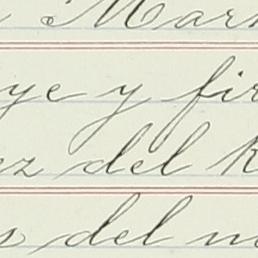 Mar
ye y fir
ez del R
s del m